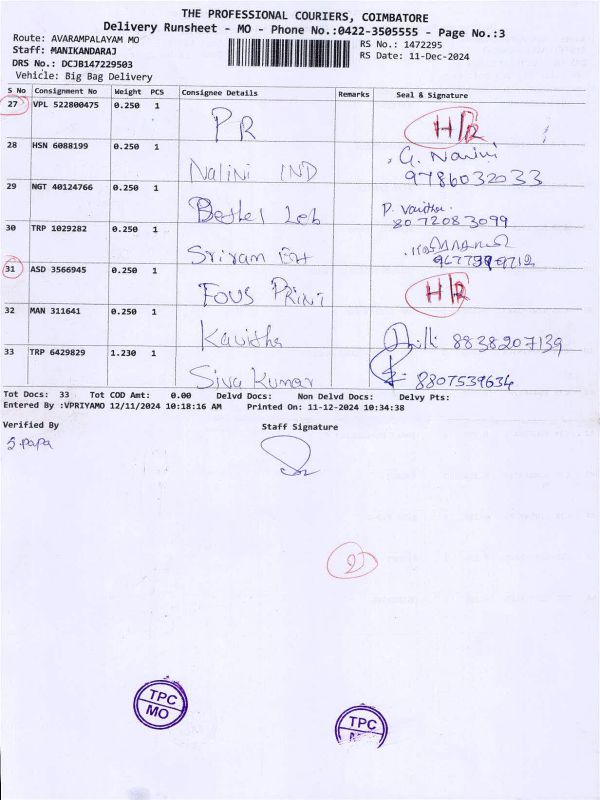 THE PROFESSIONAL COURIERS, COIMBATORE
Delivery Runsheet - MO - Phone No.:0422-3505555 - Page No.:3
Route: AVARAMPALAYAM MO
RS No.: 1472295
Staff: MANIKANDARAJ
RS Date: 11-Dec-2024
DRS No.: DCJB147229503
Vehicle: Big Bag Delivery
S No Consignment No Weight PCS Consignee Details Remarks Seal & Signature
27 VPL 522800475 0.250 1 PR H/R
28 HSN 6088199 0.250 1 Nalini IND G. Nalini
9786032033
29 NGT 40124766 0.250 1 Bethel Leb
8072083099
30 TRP 1029282 0.250 1 Sriram Ent
31 ASD 3566945 0.250 1 FOUS PRINT H/R
32 MAN 311641 0.250 1 Kavitha 8838207139
33 TRP 6429829 1.230 1 Siva Kumar 8807539634
Tot Docs: 33 Tot COD Amt: 0.00 Delvd Docs: Non Delvd Docs: Delvy Pts:
Entered By :VPRIYAMO 12/11/2024 10:18:16 AM Printed On: 11-12-2024 10:34:38
Verified By Staff Signature
S. papa
2
TPC
MO
TPC